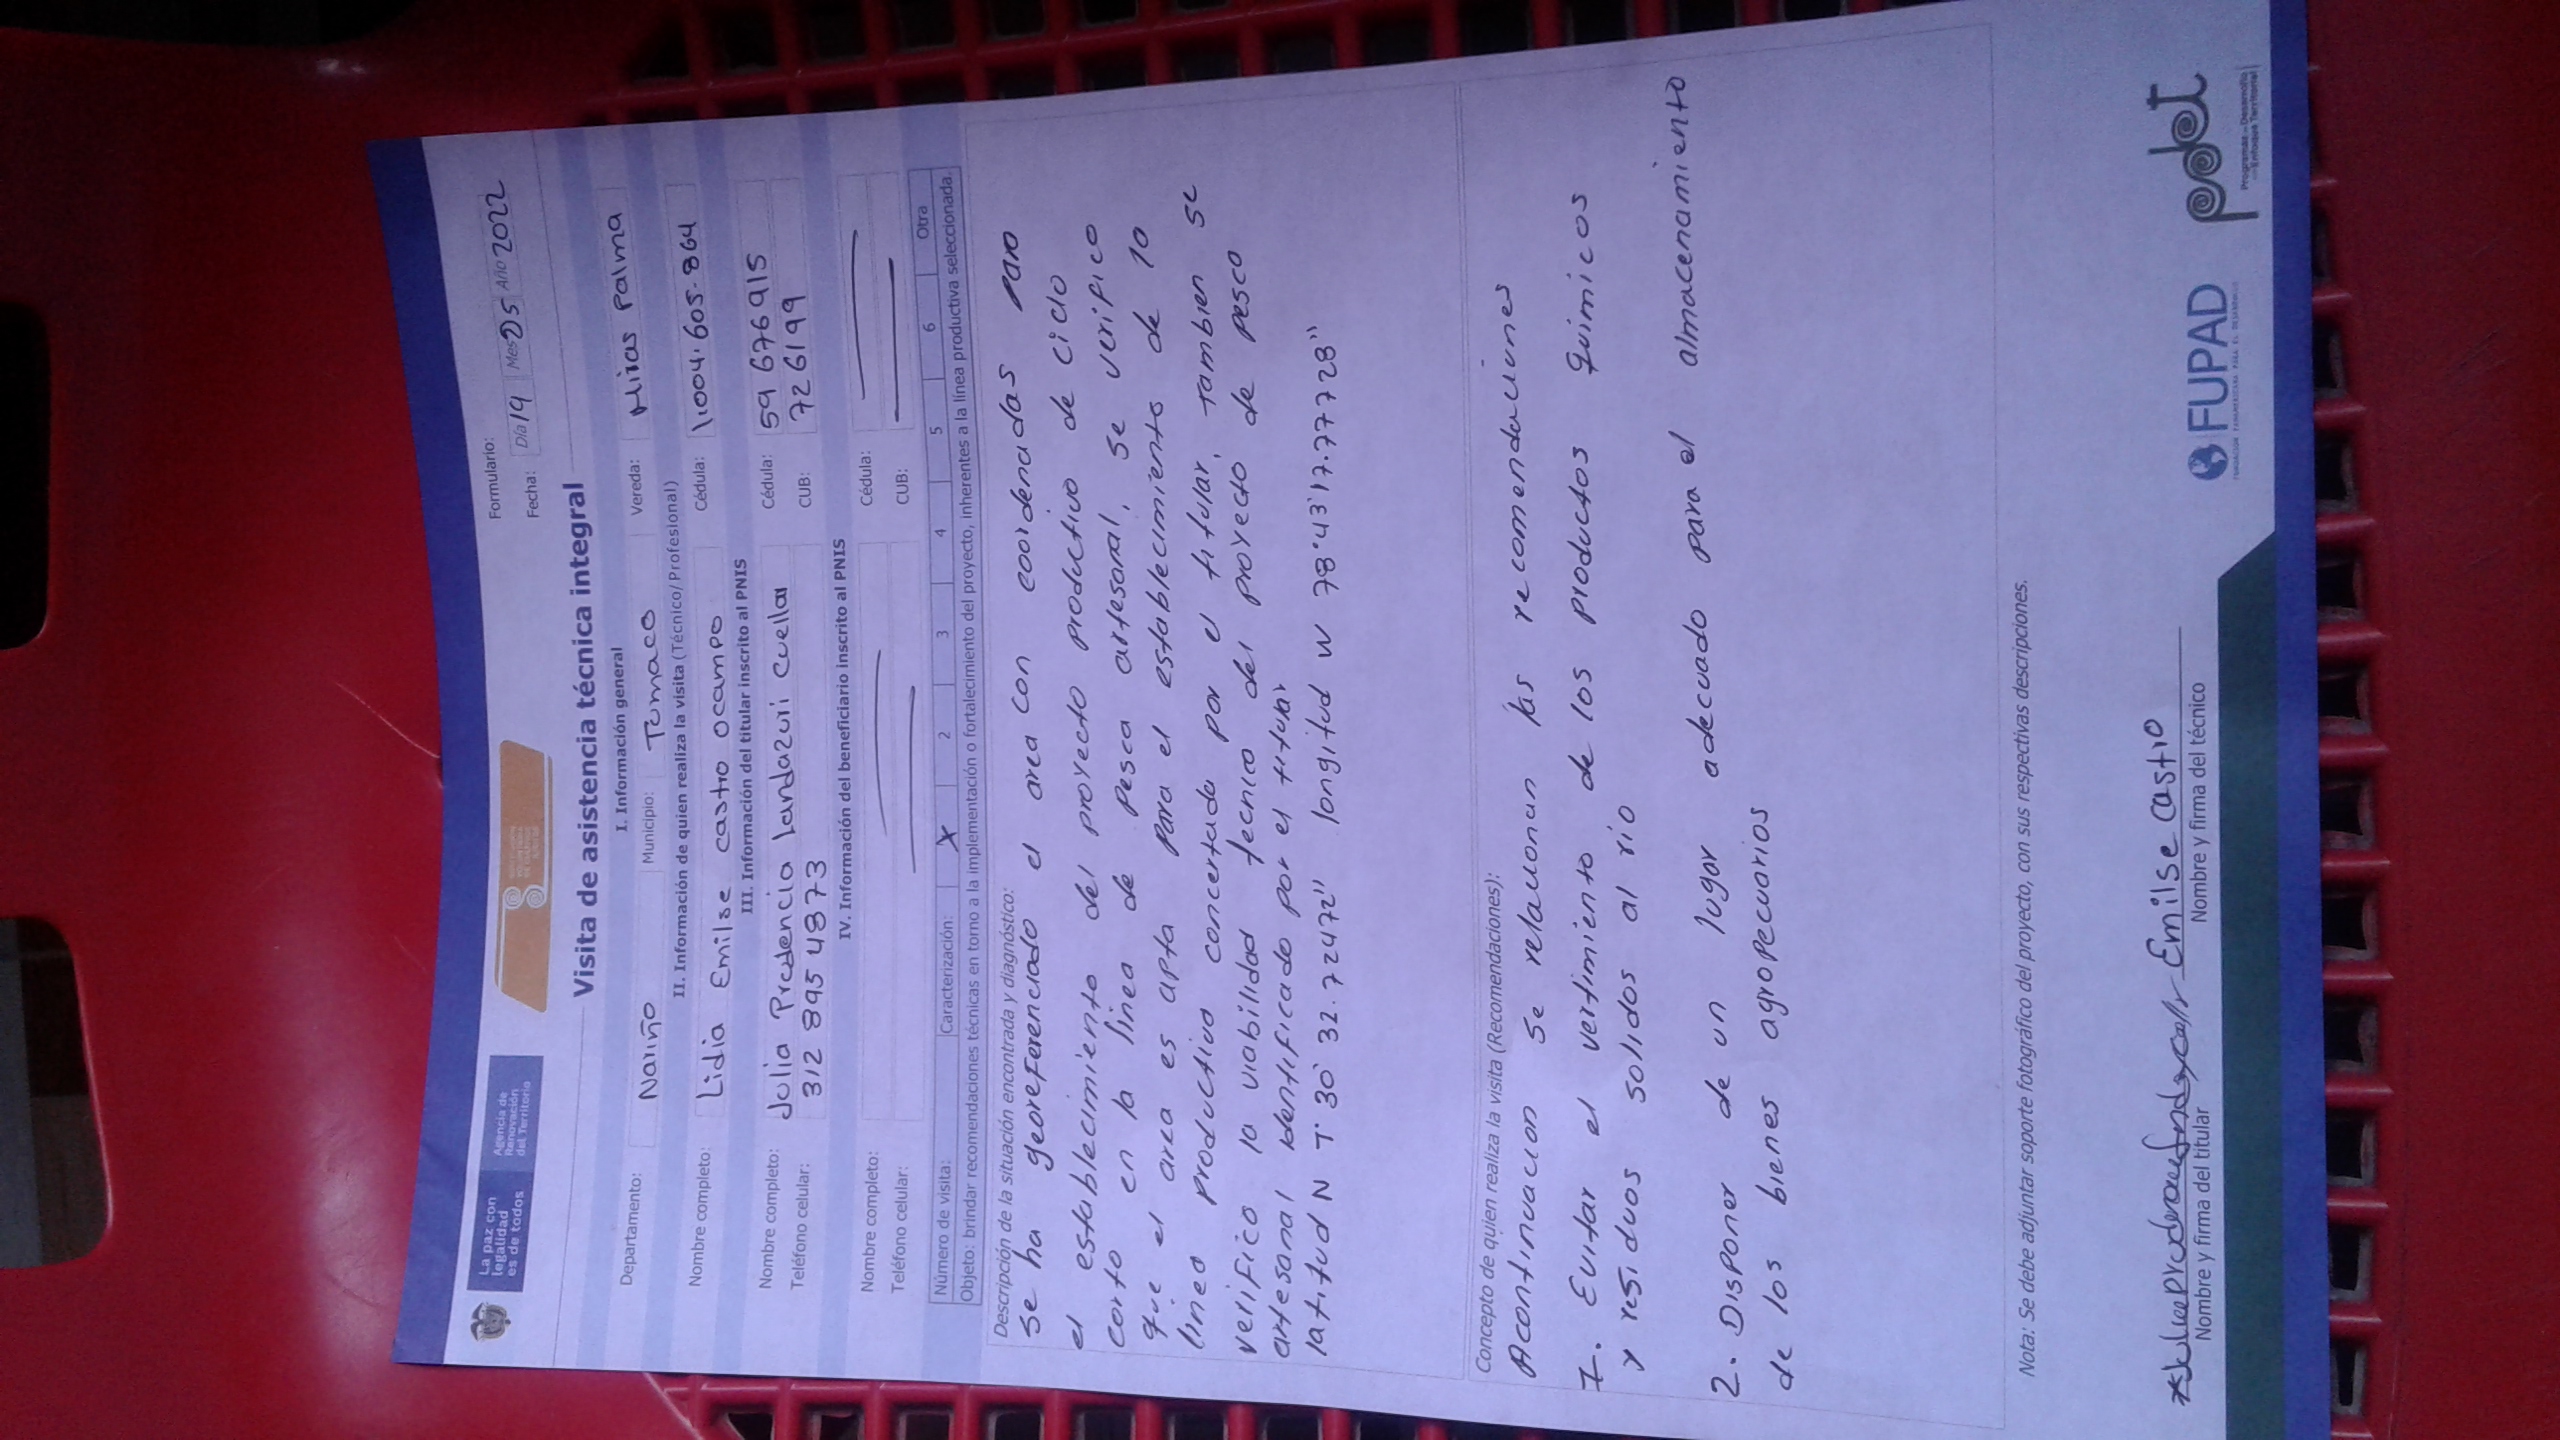 La paz con
legalidad
es de todos
Agencia de
Renovación
del Territorio
Formulario:
Fecha: Día 19 Mes 05 Año 2022
Visita de asistencia técnica integral
I. Información general
Departamento: Nariño Municipio: Tumaco Vereda: Miras Palma
II. Información de quien realiza la visita (Técnico/Profesional)
Nombre completo: Lidia Emilse castro Ocampo Cédula: 1.004.605.864
III. Información del titular inscrito al PNIS
Nombre completo: Julia Prudencia landazuri Cuellar Cédula: 59 676 915
Teléfono celular: 312 895 4873 CUB: 726199
IV. Información del beneficiario inscrito al PNIS
Nombre completo: Cédula:
Teléfono celular: CUB:
Número de visita: Caracterización: X 2 3 4 5 6 Otra
Objeto: brindar recomendaciones técnicas en torno a la implementación o fortalecimiento del proyecto, inherentes a la línea productiva seleccionada.
Descripción de la situación encontrada y diagnóstico:
se ha georeferenciado el area con coordenadas para
el establecimiento del proyecto productivo de ciclo
corto en la linea de pesca artesanal, se verifico
que el area es apta para el establecimiento de la
linea productiva concertada por el titular, tambien se
verifico la viabilidad tecnica del proyecto de pesca
artesanal identificado por el titular
latitud N 1° 30' 32.72472" longitud W 78°43'17.77728"
Concepto de quien realiza la visita (Recomendaciones):
Acontinuacion se relacionan las recomendaciones
1. Evitar el vertimiento de los productos quimicos
y residuos solidos al rio
2. Disponer de un lugar adecuado para el almacenamiento
de los bienes agropecuarios
Nota: Se debe adjuntar soporte fotográfico del proyecto, con sus respectivas descripciones.
Emilse Castro
Nombre y firma del titular Nombre y firma del técnico
FUPAD
FUNDACIÓN PANAMERICANA PARA EL DESARROLLO
pdet
Programas de Desarrollo
con Enfoque Territorial